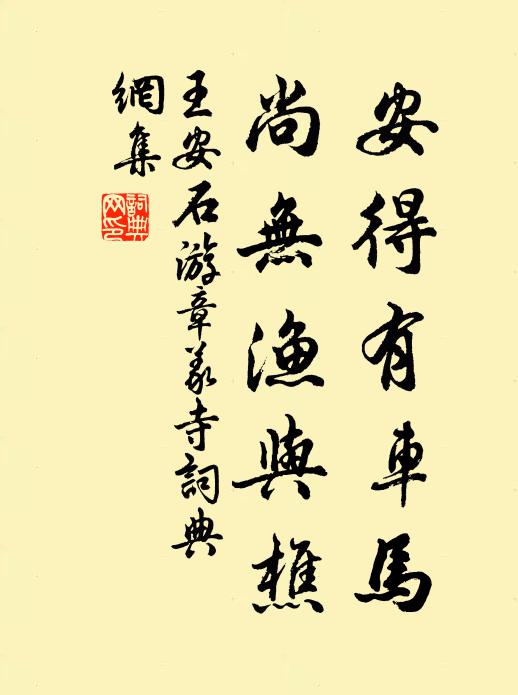 安得有車馬
尚無漁與樵
王安石游章義寺詞典
網集
詞典
网印